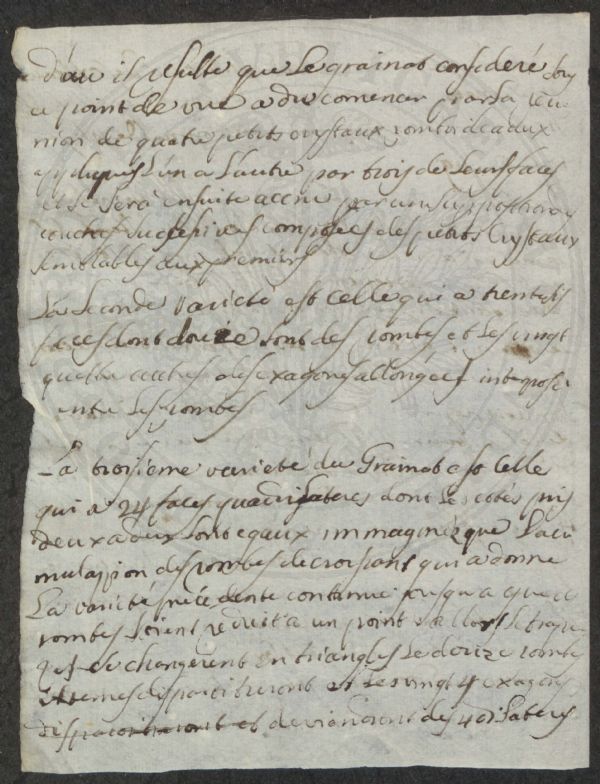 d'ou il resulte que Le grainat consideré sous
ce point de vue a du comencer par la reu
nion de quatre petits crystaux romboideaux
apliqués L'un a L'autre par trois de Leurs faces
et se sera ensuite accru par un
couches successives composées des petits Crystaux
semblables aux premiers
La Seconde varieté est Celle qui a trentesis
faces dont douze sont des rombes et Les vingt
quattre autres des exagones allongees interposé
entre Les rombes
La troisieme varieté du Grainat est Celle
qui a 24 faces quadrilateres dont Les cotés pris
deux a deux sont egaux immaginez que L'acu
mulassion des rombes decroissant qui a donne
La varieté précédente continue jusqu a que Les
rombes soient reduit a un point allors
se changeront en triangles Le douze rombe
extremes disparoitreront et Les vingt 4 exagones
disparoitreront et deviendront des quadrilateres